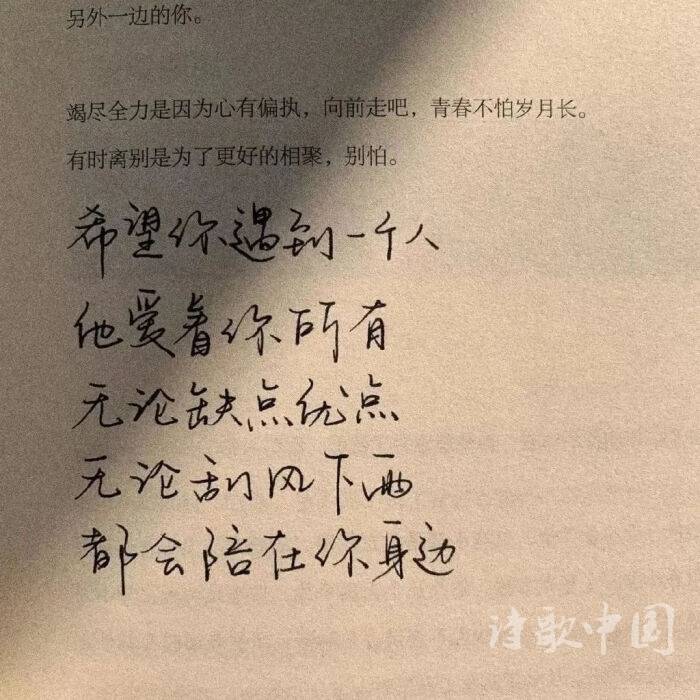 另外一边的你。
竭尽全力是因为心有偏执，向前走吧，青春不怕岁月长。
有时离别是为了更好的相聚，别怕。
希望你遇到一个人
他爱着你所有
无论缺点优点
无论刮风下雨
都会陪在你身边
诗歌中国